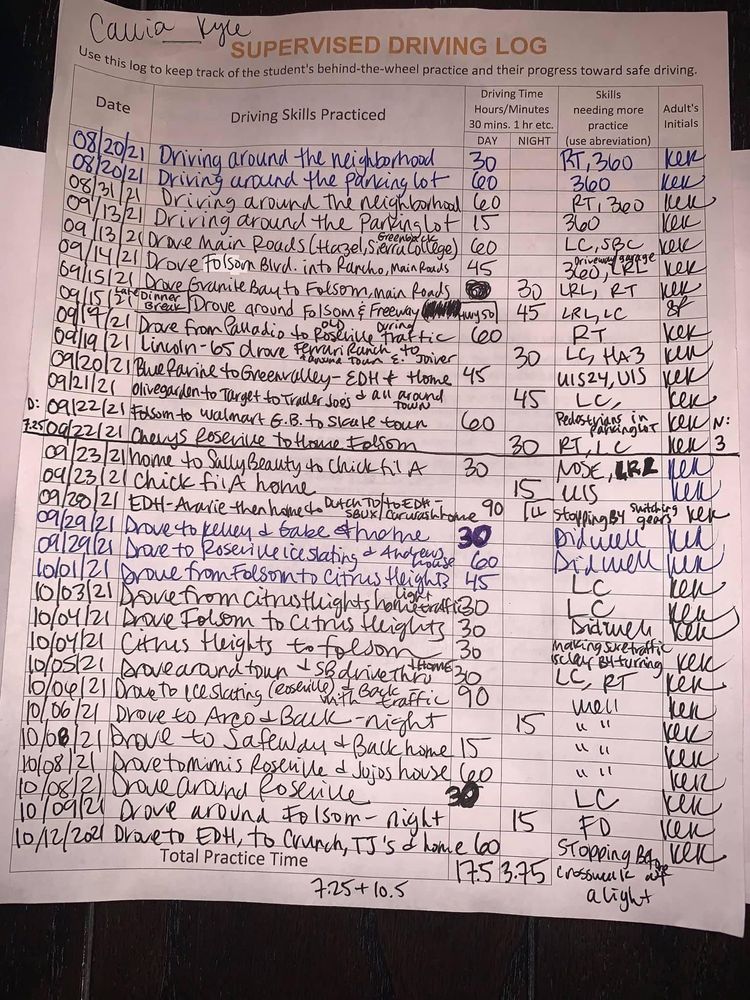 Kyle
SUPERVISED DRIVING LOG
Use this log to keep track of the student's behind-the-wheel practice and their progress toward safe driving.
Date Driving Skills Practiced Driving Time Hours/Minutes 30 mins. 1 hr etc. DAY NIGHT Skills needing more practice (use abreviation) Adult's Initials
08/20/21 Driving around the neighborhood 30 RT, 360 KEK
08/20/21 Driving around the parking lot 60 360 KEK
08/31/21 Driving around the neighborhood 60 RT, 360 KEK
09/13/21 Driving around the Parking Lot 15 360 KEK
09/13/21 Drove Main Roads (Hazel, Greenback Sierra College) 60 LC, SBC KEK
09/14/21 Drove Folsom Blvd. into Rancho, Main Roads 45 Driveway/garage 360, LRL KEK
09/15/21 Drove Granite Bay to Folsom, main Roads 30 LRL, RT KEK
09/15/21 Late Dinner Break Drove around Folsom & Freeway Hwy 50 45 LRL, LC
09/19/21 Drove from Palladio to old Roseville During traffic 60 RT KEK
09/19/21 Lincoln-65 drove Ferrari Ranch to 30 LC, HA3 KEK
09/20/21 Blue Ravine to Greenvalley - EDH & Home 45 UIS24, UIS KEK
09/21/21 Olivegarden to Target to Trader Joe's & all around TOWN 45 LC, KEK
D: 7.25 09/22/21 Folsom to Walmart G.B. to Skate town 60 Pedestrians in Parking LOT KEK N: 3
09/22/21 Chevys Roseville to Home Folsom 30 RT, LC KEK
09/23/21 Home to Sally Beauty to Chick fil A 30 NDSE, LRL KEK
09/23/21 Chick fil A home 15 UIS KEK
09/28/21 EDH - then home to Dutch to EDH - SBUX/Carwash home 90 Stopping By switching gears KEK
09/29/21 Drove to Kelley & Gabe & home 30 Did well KEK
09/29/21 Drove to Roseville ice skating & Andrews house 60 Did well KEK
10/01/21 Drove from Folsom to Citrus Heights 45 LC KEK
10/03/21 Drove from Citrus Heights home light traffic 30 LC KEK
10/04/21 Drove Folsom to Citrus Heights 30 Did well KEK
10/04/21 Citrus Heights to folsom 30 making sure traffic is clear B4 turning KEK
10/05/21 Drove around town & SB drive Thru & Home 30 LC, RT KEK
10/06/21 Drove to Ice Skating (Roseville) & Back with traffic 90 well KEK
10/06/21 Drove to Arco & Back - night 15 " " KEK
10/08/21 Drove to Safeway & Back home 15 " " KEK
10/08/21 Drove to mimis Roseville & Jojos house 60 " " KEK
10/08/21 Drove around Roseville 30 LC KEK
10/09/21 Drove around Folsom - night 15 FD KEK
10/12/2021 Drove to EDH, to Crunch, TJ's & home 60 STOPPING B4 crosswalk at a light KEK
Total Practice Time 17.5 3.75
7.25 + 10.5